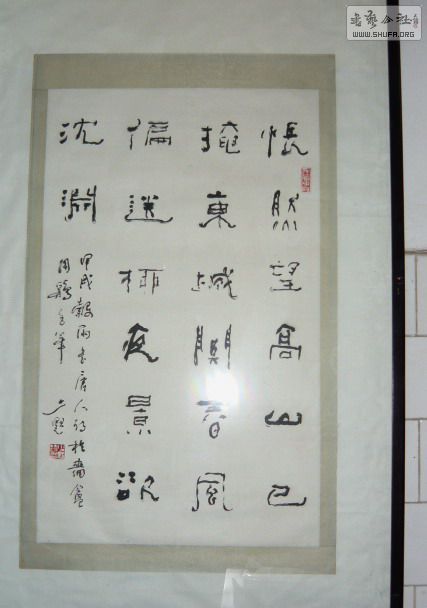 書藝公社
WWW.SHUFA.ORG
悵然望高山已
掩東城關春風
偏送柳夜景欲
沈淵
甲戌穀雨書唐人詩於
用鷄毫筆